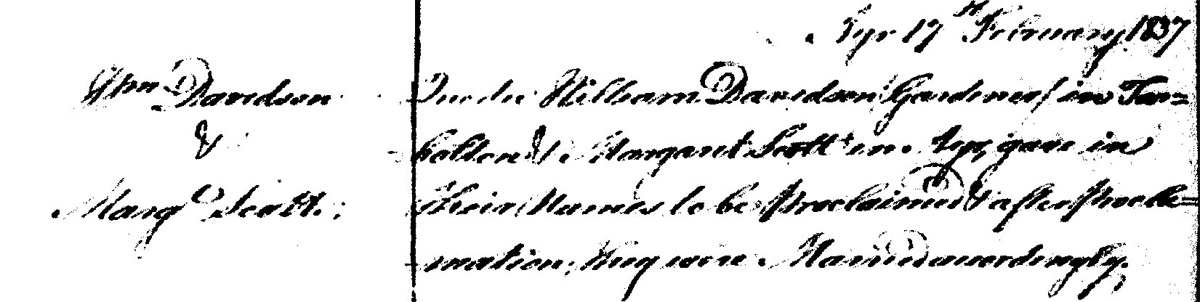 Ayr 17th February 1837
Wm Davidson
&
Margt Scott
William Davidson (Gardener) in Tar=
bolton & Margaret Scott in Ayr, gave in
their Names to be proclaimed & after procla=
mation, they were Married accordingly.